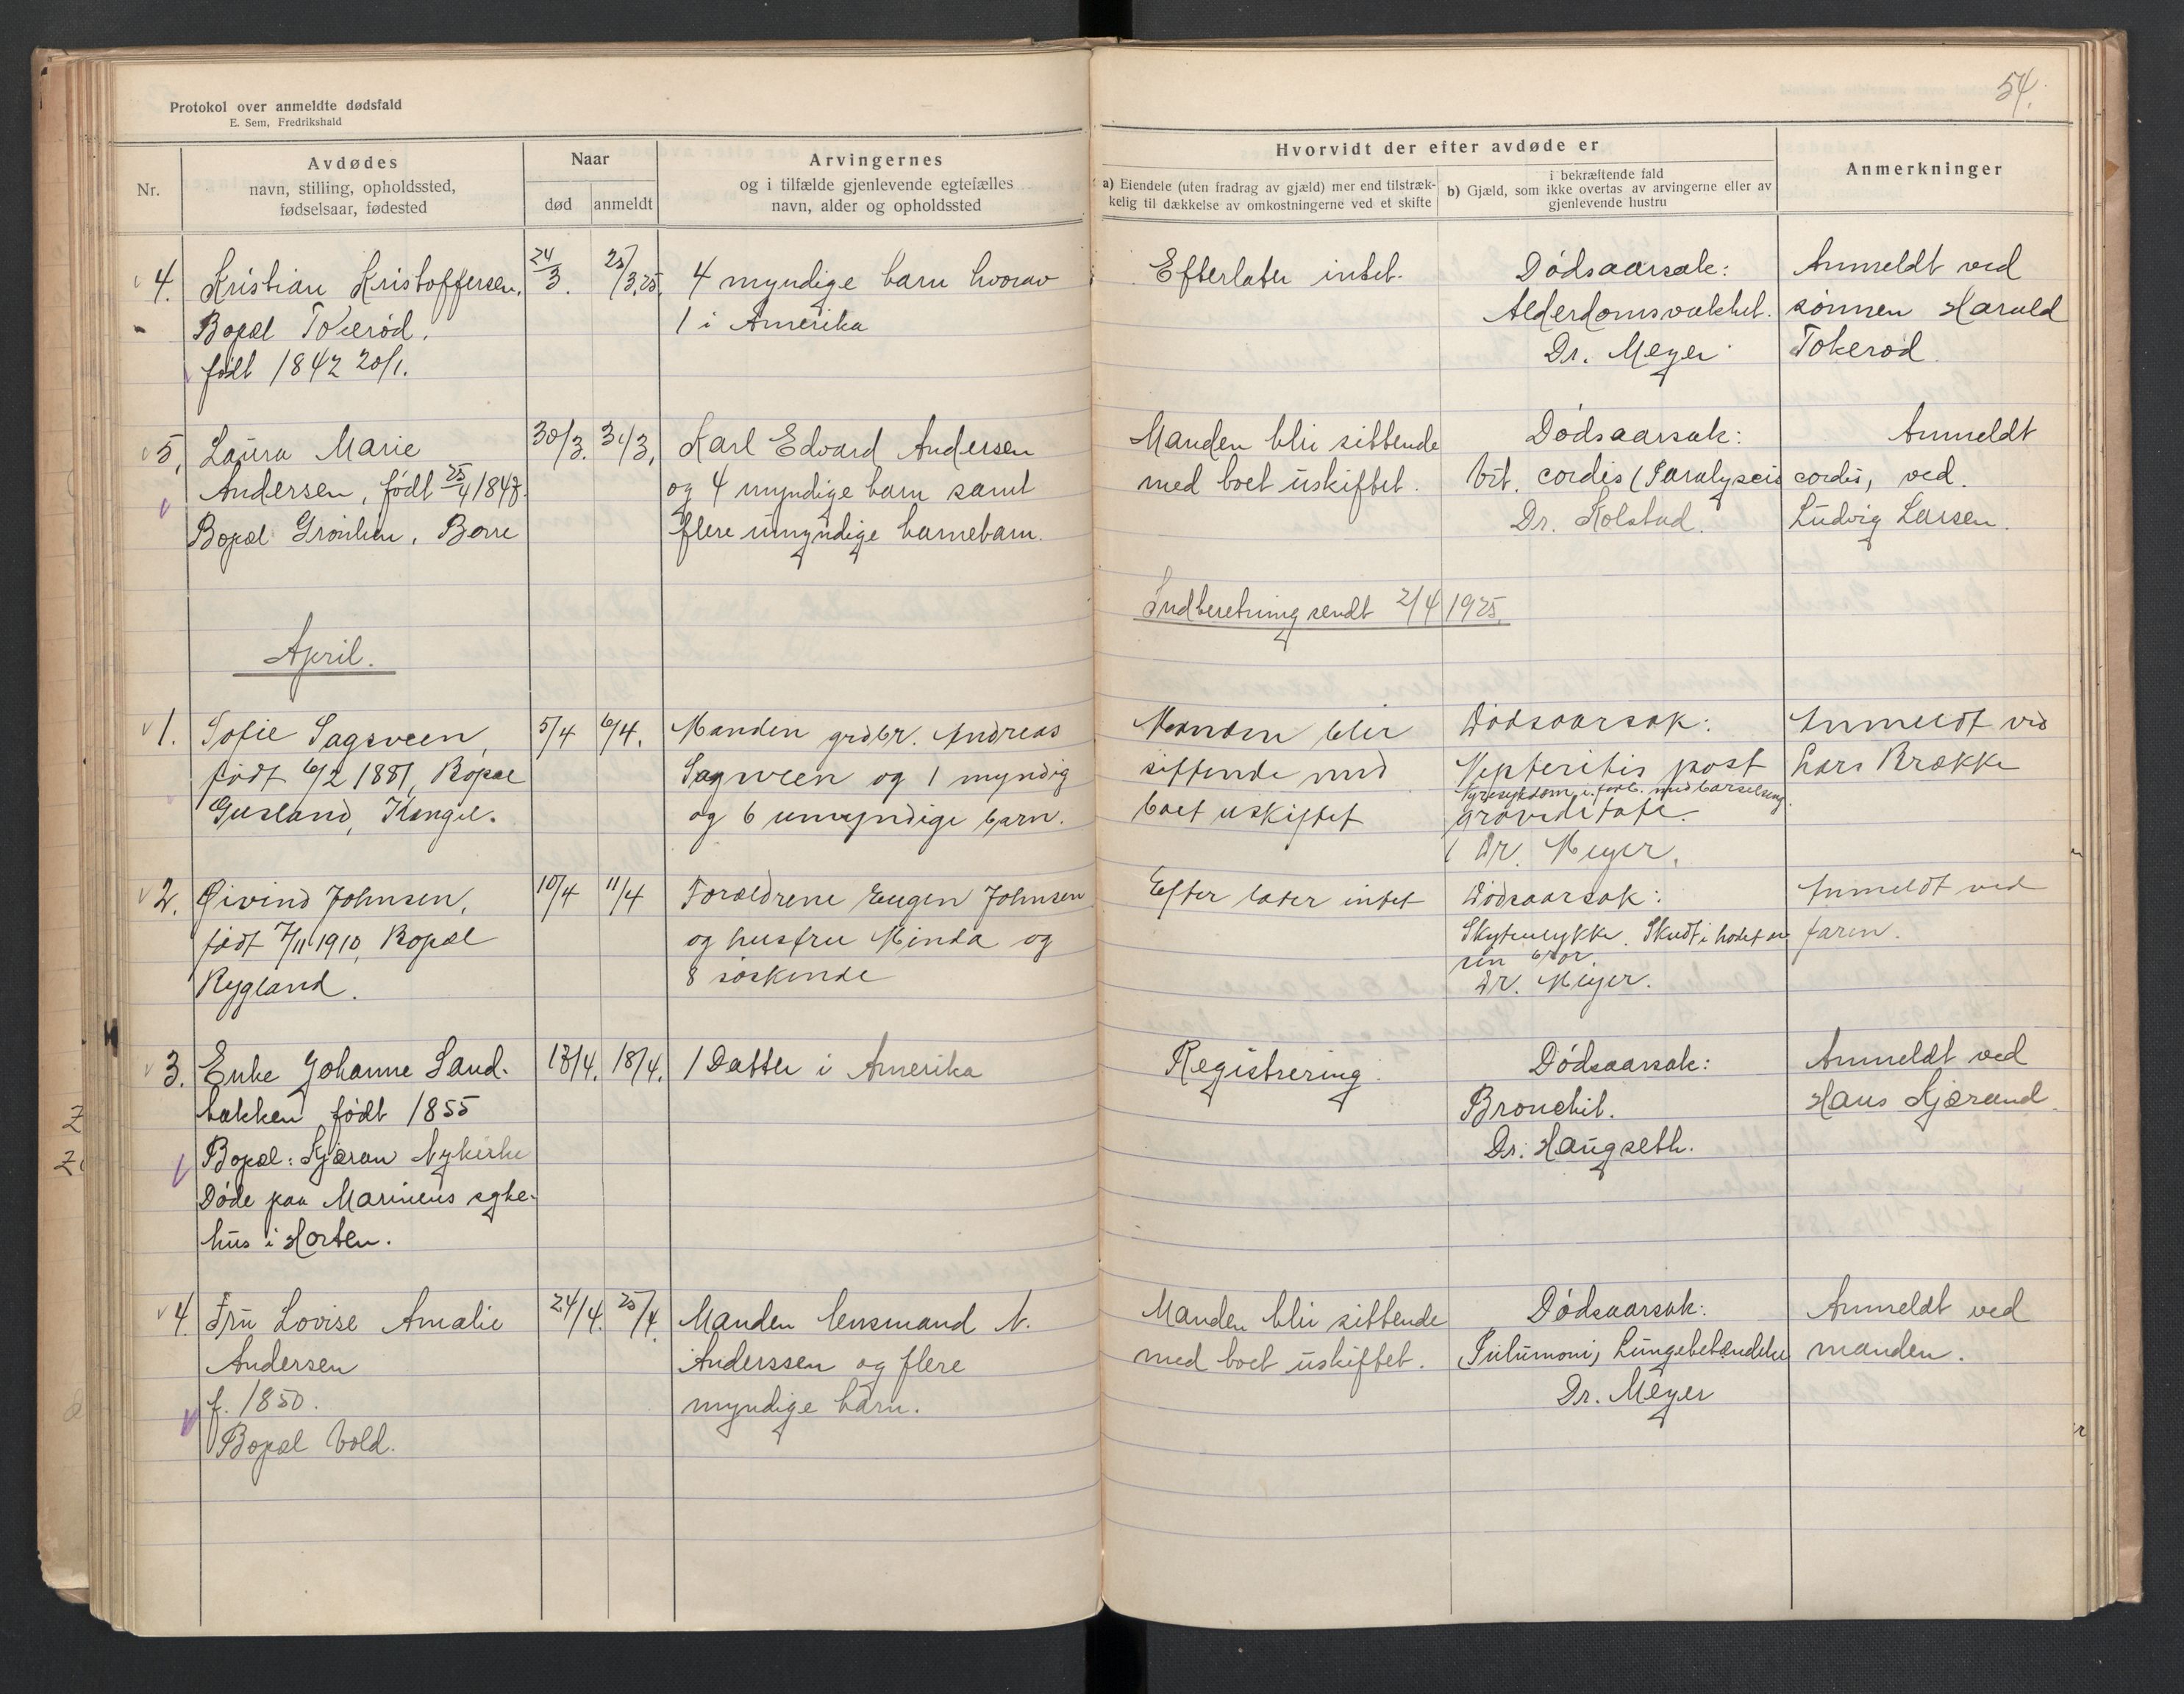 Protokol over anmeldte dødsfald
E. Sem, Fredrikshald
54.
Nr.
Avdødes
navn, stilling, opholdssted,
fødselsaar, fødested
Naar
død
anmeldt
Arvingernes
og i tilfælde gjenlevende egtefælles
navn, alder og opholdssted
Hvorvidt der efter avdøde er
a) Eiendele (uten fradrag av gjæld) mer end tilstræk-
kelig til dækkelse av omkostningerne ved et skifte
i bekræftende fald
b) Gjæld, som ikke overtas av arvingerne eller av
gjenlevende hustru
Anmerkninger
4. Kristian Kristoffersen,
Bopæl Tokerød.
født 1842 20/1.
24/3.
25/3.25.
4 myndige barn hvorav
1 i Amerika
Efterlater intet.
Dødsaarsak:
Alderdomsvakhet.
Dr. Meyer
Anmeldt ved
sønnen Harald
Tokerød.
5. Laura Marie
Andersen, født 25/4 1848.
Bopæl Grønlien, Borre
30/3.
31/3.
Karl Edvard Andersen
og 4 myndige barn samt
flere umyndige barnebarn.
Manden blir sittende
med boet uskiftet.
Dødsaarsak:
Vit. cordis (Paralyseis
Dr. Kolstad.
Anmeldt
cordis, ved
Ludvig Larsen.
Indberetning sendt 2/4 1925.
April.
1. Sofie Sagsveen,
født 6/2 1881, Bopæl
Gusland,
5/4
6/4.
Manden grdbr. Andreas
Sagsveen og 1 myndig
og 6 umyndige barn.
Manden blir
sittende med
boet uskiftet
Dødsaarsak:
Nepteritis post
Nyresykdom i forb. med barselseng.
graviditate.
Dr. Meyer.
Anmeldt ved
Lars Brække
2. Øivind Johnsen,
født 7/11 1910, Bopæl
Rygland.
10/4
11/4
Forældrene Eugen Johnsen
og hustru Minda og
8 søskende
Efter later intet
Dødsaarsak:
Skyteulykke. Skudt i hodet av
sin bror
Dr. Meyer.
Anmeldt ved
faren.
3. Enke Johanne Sand-
bakken født 1855
Bopæl: Kjæran Nykirke
Døde paa Marinens syke-
hus i Horten.
13/4.
18/4.
1 Datter i Amerika
Registrering.
Dødsaarsak:
Bronchit.
Dr. Haugseth.
Anmeldt ved
Hans Kjærand.
4. Fru Lovise Amalie
Andersen
f. 1850.
Bopæl Vold.
24/4.
25/4.
Manden lensmand N.
Anderssen og flere
myndige barn.
Manden blir sittende
med boet uskiftet.
Dødsaarsak:
Pnlumoni, Lungebetændelse
Dr. Meyer
Anmeldt ved
manden.